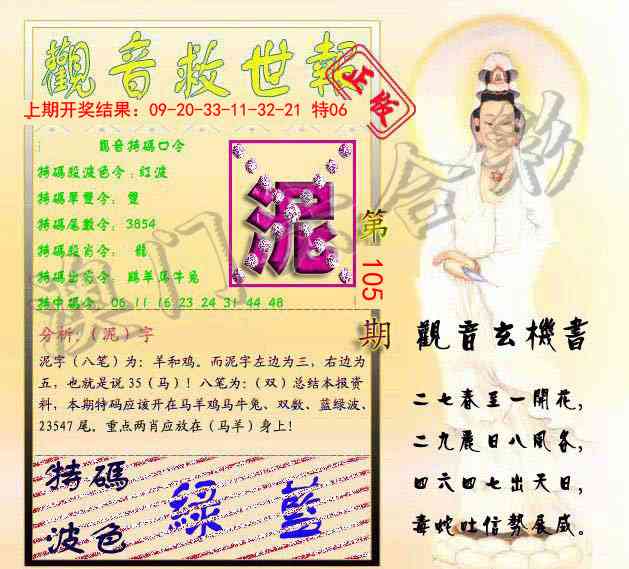 觀音救世報
正版
上期开奖结果：09-20-33-11-32-21 特06
觀音特碼口令
特碼段波色令：红波
特碼單雙令： 雙
特碼尾數令：3854
特碼段肖令： 龍
特碼出肖令： 鷄羊馬牛兔
特中碼令：06 11 16 23 24 31 44 48
泥
第105期
分析:（泥）字
泥字（八笔）为：羊和鸡。而泥字左边为三，右边为
五，也就是说 35（马）！八笔为：（双）总结本报资
料，本期特码应该开在马羊鸡马牛兔、双数、蓝绿波、
23547 尾。重点两肖应放在（马羊）身上！
特碼
波色
綠 藍
觀音玄機書
二七春至一開花，
二九麗日八風吝，
四六四七出天日，
毒蛇吐信勢展威。
澳门六合彩